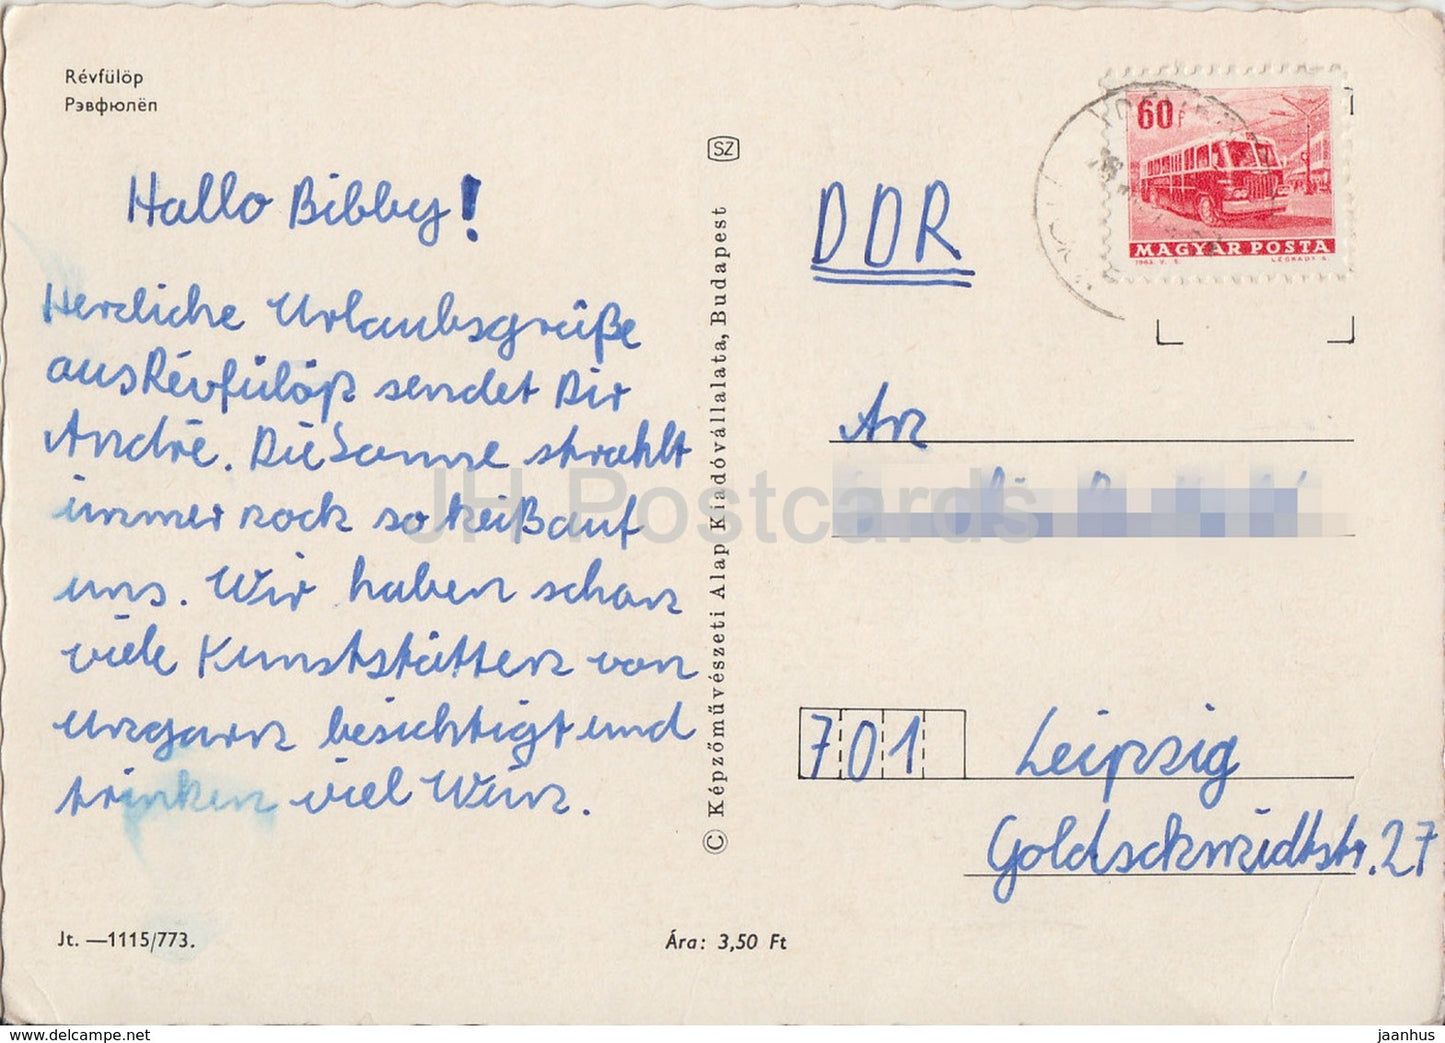 Révfülöp
Рэвфюлёп
Hallo Bibby!
Herzliche Urlaubsgrüße
aus Révfülöp sendet Dir
André. Die Sonne strahlt
immer noch so heiß auf
uns. Wir haben schon
viele Kunststätten von
Ungarn besichtigt und
trinken viel Wein.
Jt. —1115/773.
SZ
© Képzőművészeti Alap Kiadóvállalata, Budapest
Ára: 3,50 Ft
60f
MAGYAR POSTA
1963. V. E. LÉGRÁDY S.
DDR
An
701 Leipzig
Goldschmidtstr. 27
JH Postcards
jaanhus
eu.delcampe.net